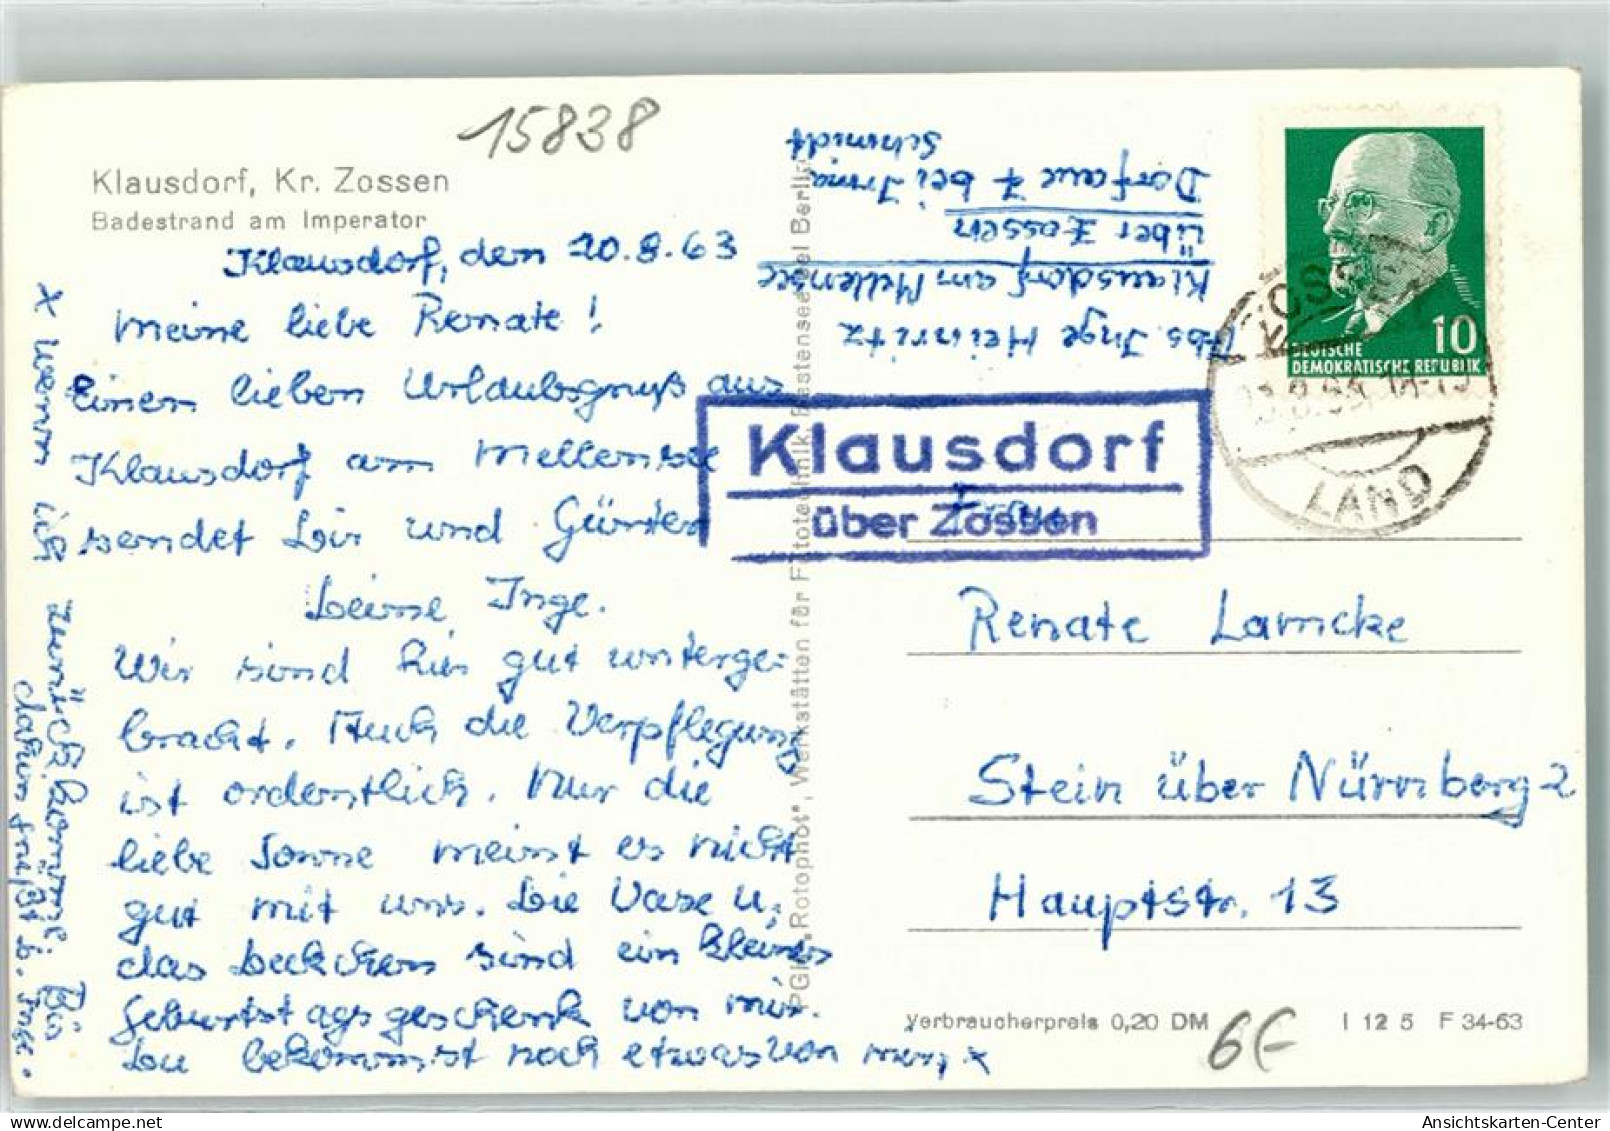 15838
Klausdorf, Kr. Zossen
Badestrand am Imperator
Klausdorf, den 20.8.63
Meine liebe Renate!
Einen lieben Urlaubsgruß aus
Klausdorf am Mellensee
sendet Dir und Günter
Deine Inge.
Wir sind hier gut unterge-
bracht. Auch die Verpflegung
ist ordentlich. Nur die
liebe Sonne meint es nicht
gut mit uns. Die Vase u.
das Deckchen sind ein kleines
Geburtstagsgeschenk von mir.
Du bekommst noch etwas von mir, x
x wenn ich zurückkomme. Bis
dahin grüßt D. Inge.
Abs. Inge Heinritz
Klausdorf am Mellensee
über Zossen
Dorfaue 7 bei Irma
Schmidt
PGH „Rotophot", Werkstätten für Fototechnik, Bestensee
Berlin
DEUTSCHE
DEMOKRATISCHE REPUBLIK
10
ZOSSEN
LAND
Klausdorf
über Zossen
Renate Lamcke
Stein über Nürnberg 2
Hauptstr. 13
Verbraucherpreis 0,20 DM
I 12 5 F 34-63
6€
Ansichtskarten-Center